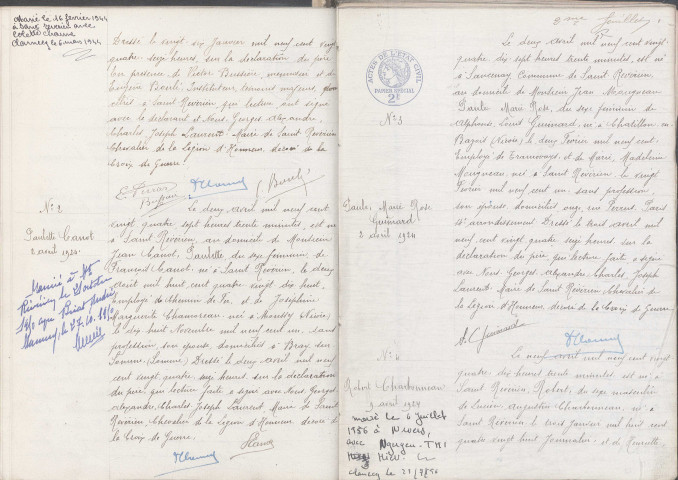 Marié le 16 février 1944
à Saint Révérien avec
Colette
Clamecy le 6 mars 1944
Dressé le vingt six Janvier mil neuf cent vingt
quatre seize heures, sur la déclaration du père
en présence de Victor Bussière, menuisier et de
Eugène Bouli, Instituteur, témoins majeurs,
à Saint Révérien, qui lecture ont signé
avec le déclarant et Nous Georges Alexandre
Charles Joseph Laurent Maire de Saint Révérien
Chevalier de la Légion d'Honneur, décoré de la
Croix de Guerre.
N° 2
Paulette Canot
2 avril 1924
Marié à
le
Le deux avril mil neuf cent
vingt quatre sept heures trente minutes, est née
à Saint Révérien, au domicile de Monsieur
Jean Canot, Paulette du sexe féminin de
François Canot, né à Saint Révérien, le deux
avril mil huit cent quatre vingt dix huit,
employé de chemin de fer, et de Joséphine
Marguerite Chamoreau née à Moussy (Nièvre)
le dix huit Novembre mil neuf cent un, sans
profession, son épouse, domiciliés à Bray sur
Somme (Somme) Dressé le deux avril mil neuf
cent vingt quatre seize heures, sur la déclaration
du père, qui lecture faite a signé avec Nous, Georges
Alexandre, Charles Joseph Laurent Maire de Saint
Révérien, Chevalier de la Légion d'Honneur décoré de
la Croix de Guerre.
2ème feuillet
ACTES DE L'ETAT CIVIL
PAPIER SPECIAL
2F
N° 3
Paule, Marie Rose
Guinard
2 avril 1924
Le deux avril mil neuf cent vingt
quatre dix sept heures trente minutes, est née
à Sancenay Commune de Saint Révérien,
au domicile de Monsieur Jean Mougneau
Paule Marie Rose, du sexe féminin de
Alphonse, Louis Guinard, né à Chatillon en
Bazois (Nièvre), le deux Février mil neuf cent
Employé de Tramways, et de Marie, Madeleine
Mougneau, née à Saint Révérien le vingt
mil neuf cent un, sans profession,
son épouse domiciliés Paris
arrondissement Dressé le trois avril mil
neuf cent vingt quatre seize heures, sur la
déclaration du père, qui lecture faite a signé
avec Nous Georges, Alexandre Charles Joseph
Laurent Maire de Saint Révérien Chevalier de
la Légion d'Honneur, décoré de la Croix de Guerre
A. Guinard
N° 4
Robert Charbonneau
9 avril 1924
marié le 6 juillet
1956 à Nevers,
avec
Nguyen-Thi
Hieu.
Clamecy le
Le neuf avril mil neuf cent vingt
quatre dix heures trente minutes est né à
Saint Révérien, Robert, du sexe masculin
de Lucien Augustin Charbonneau, né à
Saint Révérien le trois Janvier mil huit cent
quatre vingt huit Journalier et de Henriette